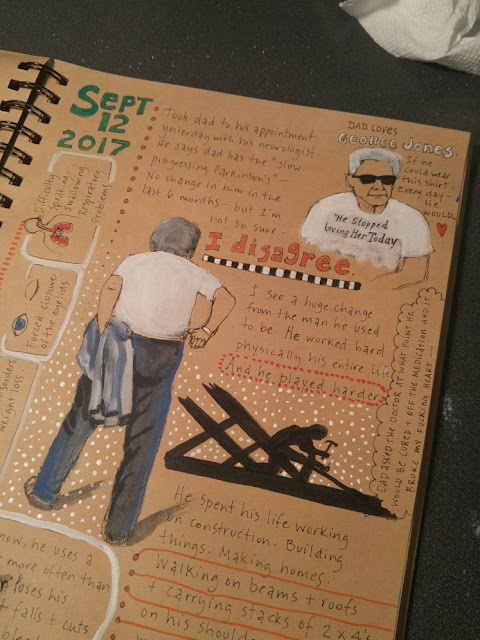 SEPT
12
2017
Took dad to his appointment
yesterday with his neurologist.
He says dad has the "slow
progressing parkinson's" —
No change in him in the
last 6 months — but I'm
not so sure.
I disagree.
DAD LOVES
GEORGE JONES.
If he
could wear
this shirt
every day —
he
WOULD.
"He Stopped
Loving Her Today
I see a huge change
from the man he used
to be. He worked hard
physically his entire life
And he played harder.
DAD ASKED THE DOCTOR AT WHAT POINT HE
WOULD BE CURED + OFF THE MEDICATION AND IT
BROKE MY FUCKING HEART...
Difficulty
Speaking,
Swallowing
Respiratory
Problems
Forced closure
of the eyelids
weight loss
He spent his life working
on construction. Building
things. Making homes.
Walking on beams + roofs
+ carrying stacks of 2x4's
on his shoulder
now, he uses a
more often than
loses his
falls + cuts